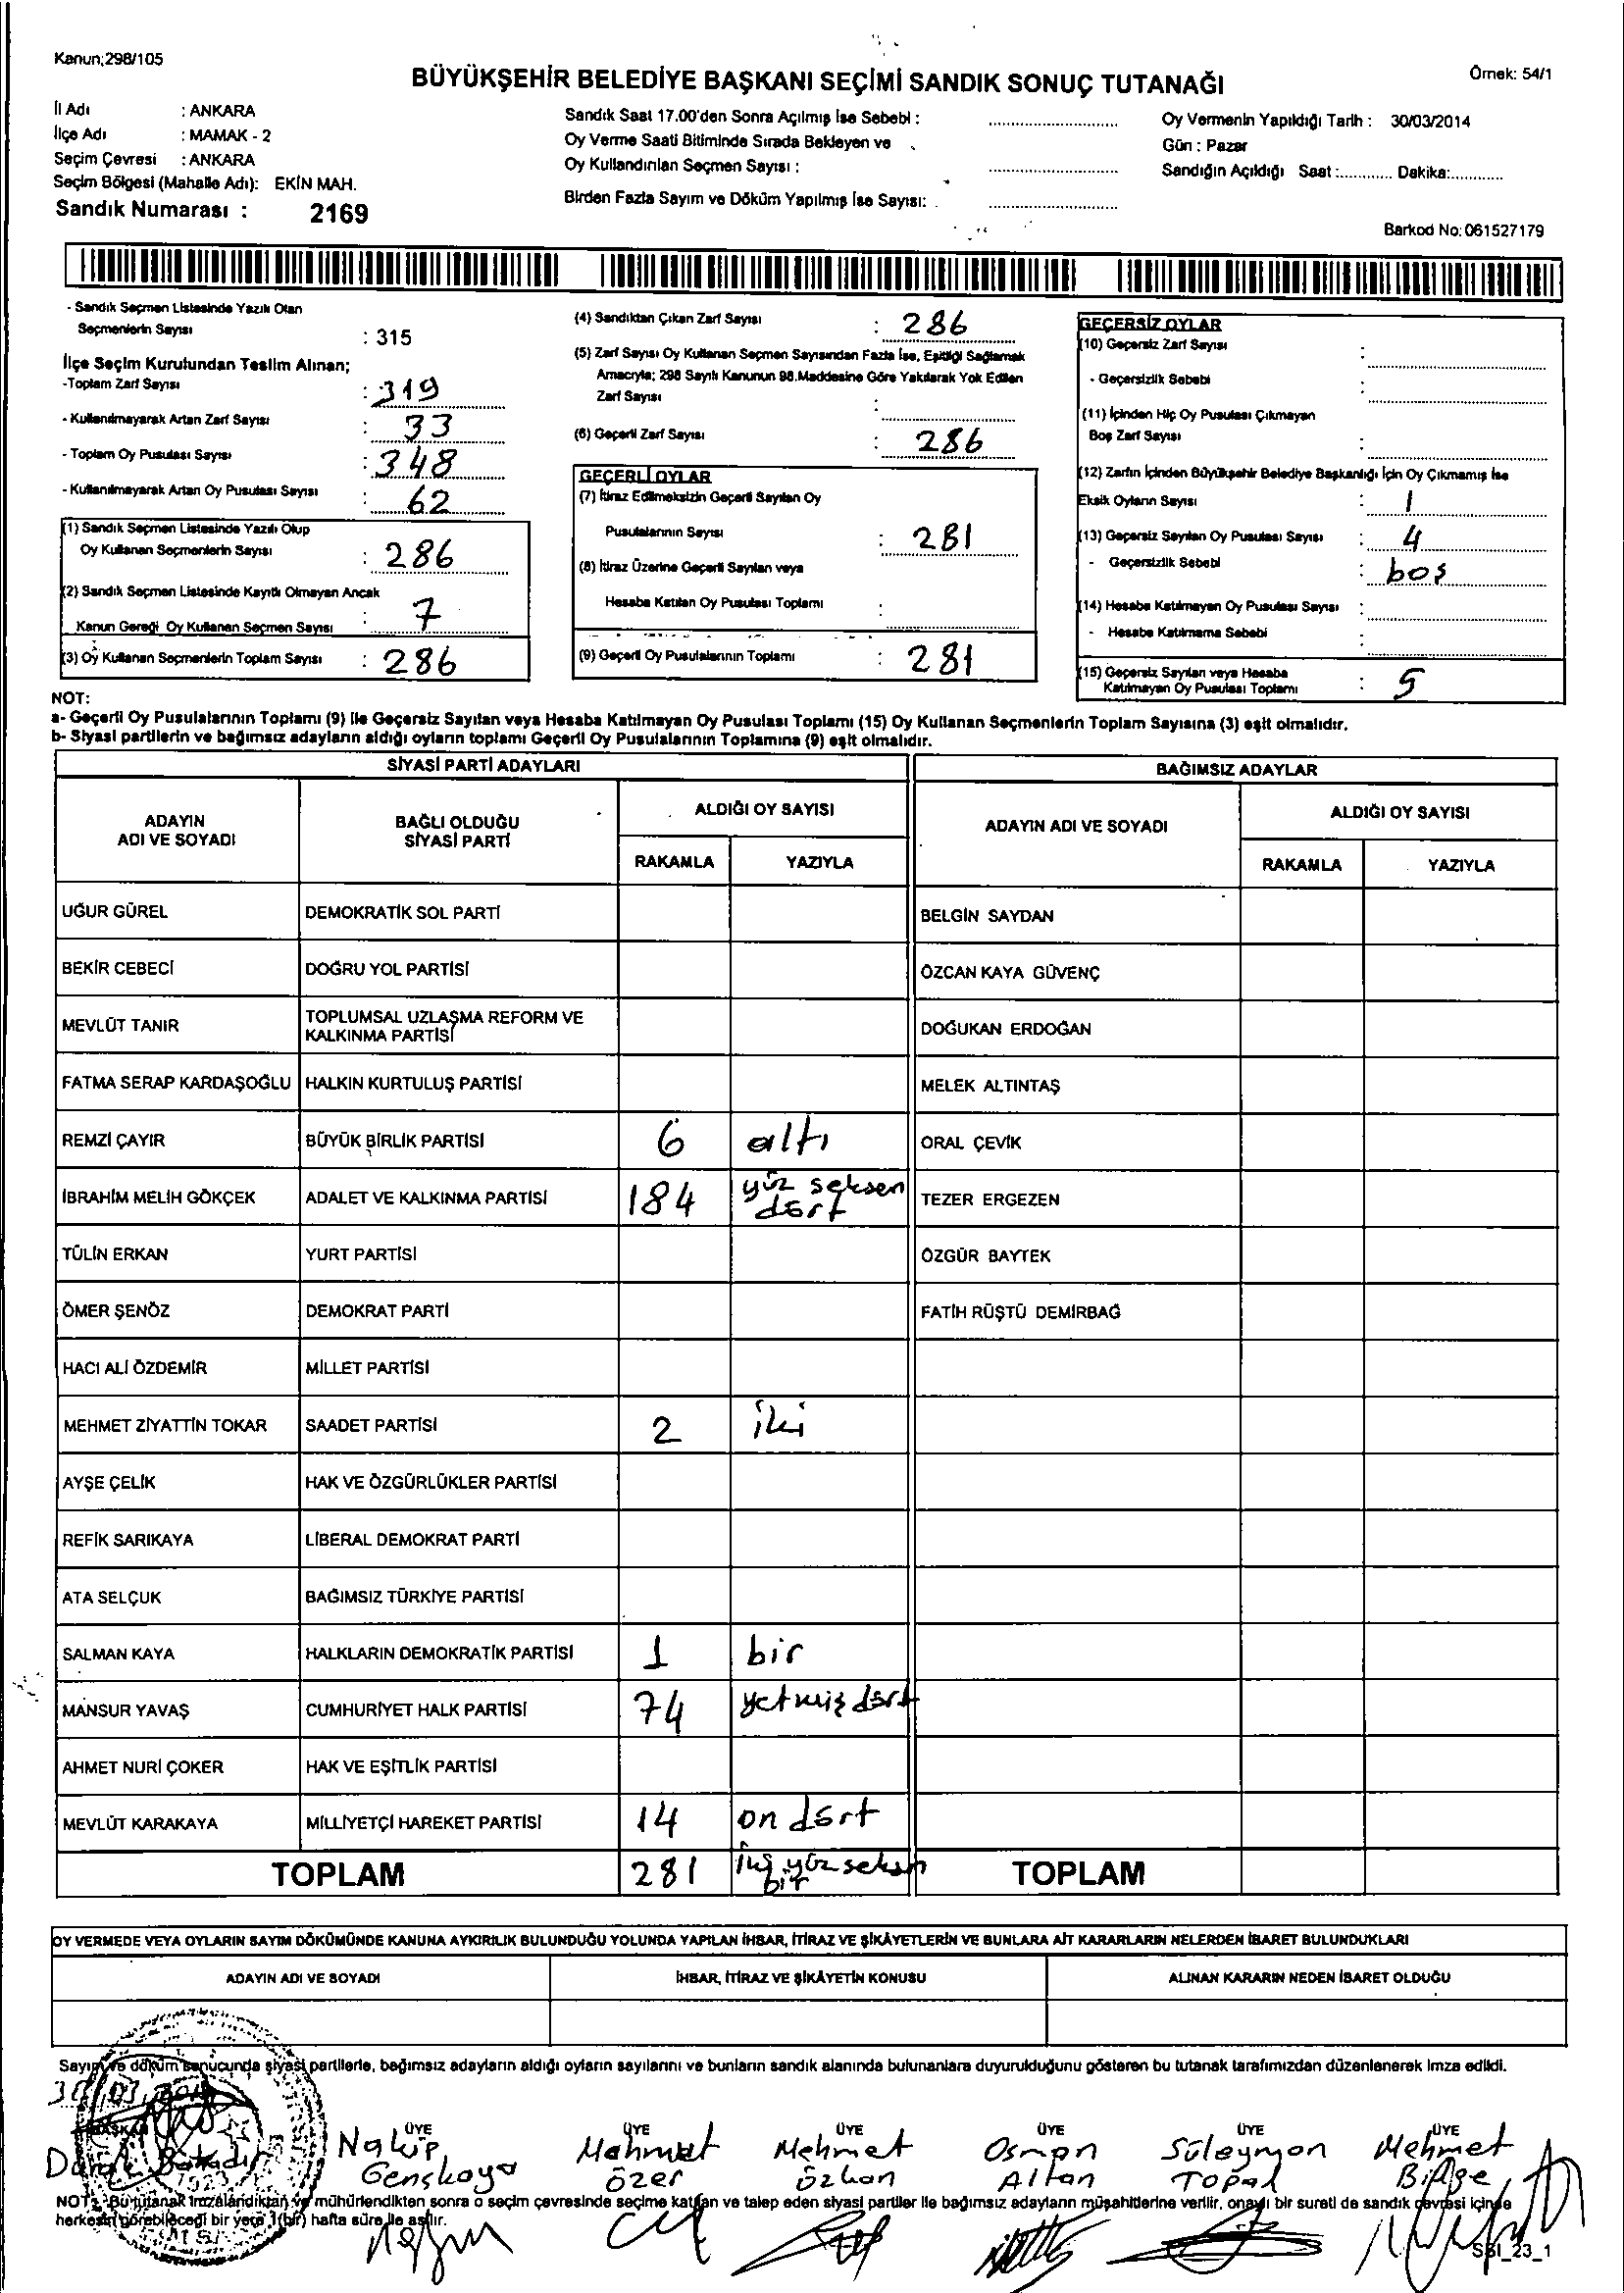 Kanun;298/105
BÜYÜKŞEHİR BELEDİYE BAŞKANI SEÇİMİ SANDIK SONUÇ TUTANAĞI
Örnek: 54/1
İl Adı : ANKARA
İlçe Adı : MAMAK - 2
Seçim Çevresi : ANKARA
Seçim Bölgesi (Mahalle Adı): EKİN MAH.
Sandık Numarası : 2169
Sandık Saat 17.00'den Sonra Açılmış İse Sebebi :
Oy Verme Saati Bitiminde Sırada Bekleyen ve
Oy Kullandırılan Seçmen Sayısı :
Birden Fazla Sayım ve Döküm Yapılmış İse Sayısı:
Oy Vermenin Yapıldığı Tarih : 30/03/2014
Gün : Pazar
Sandığın Açıldığı Saat :............ Dakika:............
Barkod No: 061527179
- Sandık Seçmen Listesinde Yazılı Olan
Seçmenlerin Sayısı : 315
İlçe Seçim Kurulundan Teslim Alınan;
-Toplam Zarf Sayısı : 319
- Kullanılmayarak Artan Zarf Sayısı : 33
- Toplam Oy Pusulası Sayısı : 348
- Kullanılmayarak Artan Oy Pusulası Sayısı : 62
(1) Sandık Seçmen Listesinde Yazılı Olup
Oy Kullanan Seçmenlerin Sayısı : 286
(2) Sandık Seçmen Listesinde Kayıtlı Olmayan Ancak
Kanun Gereği Oy Kullanan Seçmen Sayısı : 7
(3) Oy Kullanan Seçmenlerin Toplam Sayısı : 286
(4) Sandıktan Çıkan Zarf Sayısı : 286
(5) Zarf Sayısı Oy Kullanan Seçmen Sayısından Fazla İse, Eşitliği Sağlamak
Amacıyla; 298 Sayılı Kanunun 98.Maddesine Göre Yakılarak Yok Edilen
Zarf Sayısı :
(6) Geçerli Zarf Sayısı : 286
GEÇERLİ OYLAR
(7) İtiraz Edilmeksizin Geçerli Sayılan Oy
Pusulalarının Sayısı : 281
(8) İtiraz Üzerine Geçerli Sayılan veya
Hesaba Katılan Oy Pusulası Toplamı :
(9) Geçerli Oy Pusulalarının Toplamı : 281
GEÇERSİZ OYLAR
(10) Geçersiz Zarf Sayısı :
- Geçersizlik Sebebi :
(11) İçinden Hiç Oy Pusulası Çıkmayan
Boş Zarf Sayısı :
(12) Zarfın İçinden Büyükşehir Belediye Başkanlığı İçin Oy Çıkmamış İse
Eksik Oyların Sayısı : 1
(13) Geçersiz Sayılan Oy Pusulası Sayısı : 4
- Geçersizlik Sebebi : boş
(14) Hesaba Katılmayan Oy Pusulası Sayısı :
- Hesaba Katılmama Sebebi :
(15) Geçersiz Sayılan veya Hesaba
Katılmayan Oy Pusulası Toplamı : 5
NOT:
a- Geçerli Oy Pusulalarının Toplamı (9) ile Geçersiz Sayılan veya Hesaba Katılmayan Oy Pusulası Toplamı (15) Oy Kullanan Seçmenlerin Toplam Sayısına (3) eşit olmalıdır.
b- Siyasi partilerin ve bağımsız adayların aldığı oyların toplamı Geçerli Oy Pusulalarının Toplamına (9) eşit olmalıdır.
SİYASİ PARTİ ADAYLARI
BAĞIMSIZ ADAYLAR
ADAYIN ADI VE SOYADI
BAĞLI OLDUĞU SİYASİ PARTİ
ALDIĞI OY SAYISI
RAKAMLA YAZIYLA
ADAYIN ADI VE SOYADI
ALDIĞI OY SAYISI
RAKAMLA YAZIYLA
UĞUR GÜREL DEMOKRATİK SOL PARTİ BELGİN SAYDAN
BEKİR CEBECİ DOĞRU YOL PARTİSİ ÖZCAN KAYA GÜVENÇ
MEVLÜT TANIR TOPLUMSAL UZLAŞMA REFORM VE KALKINMA PARTİSİ DOĞUKAN ERDOĞAN
FATMA SERAP KARDAŞOĞLU HALKIN KURTULUŞ PARTİSİ MELEK ALTINTAŞ
REMZİ ÇAYIR BÜYÜK BİRLİK PARTİSİ 6 altı ORAL ÇEVİK
İBRAHİM MELİH GÖKÇEK ADALET VE KALKINMA PARTİSİ 184 yüz seksen dört TEZER ERGEZEN
TÜLİN ERKAN YURT PARTİSİ ÖZGÜR BAYTEK
ÖMER ŞENÖZ DEMOKRAT PARTİ FATİH RÜŞTÜ DEMİRBAĞ
HACI ALİ ÖZDEMİR MİLLET PARTİSİ
MEHMET ZİYATTİN TOKAR SAADET PARTİSİ 2 iki
AYŞE ÇELİK HAK VE ÖZGÜRLÜKLER PARTİSİ
REFİK SARIKAYA LİBERAL DEMOKRAT PARTİ
ATA SELÇUK BAĞIMSIZ TÜRKİYE PARTİSİ
SALMAN KAYA HALKLARIN DEMOKRATİK PARTİSİ 1 bir
MANSUR YAVAŞ CUMHURİYET HALK PARTİSİ 74 yetmiş dört
AHMET NURİ ÇOKER HAK VE EŞİTLİK PARTİSİ
MEVLÜT KARAKAYA MİLLİYETÇİ HAREKET PARTİSİ 14 on dört
TOPLAM 281 iki yüz seksen bir TOPLAM
OY VERMEDE VEYA OYLARIN SAYIM DÖKÜMÜNDE KANUNA AYKIRILIK BULUNDUĞU YOLUNDA YAPILAN İHBAR, İTİRAZ VE ŞİKÂYETLERİN VE BUNLARA AİT KARARLARIN NELERDEN İBARET BULUNDUKLARI
ADAYIN ADI VE SOYADI İHBAR, İTİRAZ VE ŞİKÂYETİN KONUSU ALINAN KARARIN NEDEN İBARET OLDUĞU
Sayım ve döküm sonucunda siyasi partilerle, bağımsız adayların aldığı oyların sayılarını ve bunların sandık alanında bulunanlara duyurulduğunu gösteren bu tutanak tarafımızdan düzenlenerek imza edildi.
BAŞKAN ÜYE ÜYE ÜYE ÜYE ÜYE ÜYE
Nakip Mahmut Mehmet Osman Süleyman Mehmet
Gençkaya Özer Özkan Altan Topal Bilge
NOT: Bu tutanak imzalandıktan ve mühürlendikten sonra o seçim çevresinde seçime katılan ve talep eden siyasi partiler ile bağımsız adayların müşahitlerine verilir, onaylı bir sureti de sandık çevresi içinde
herkesin görebileceği bir yere 1(bir) hafta süre ile asılır.
SSI_23_1